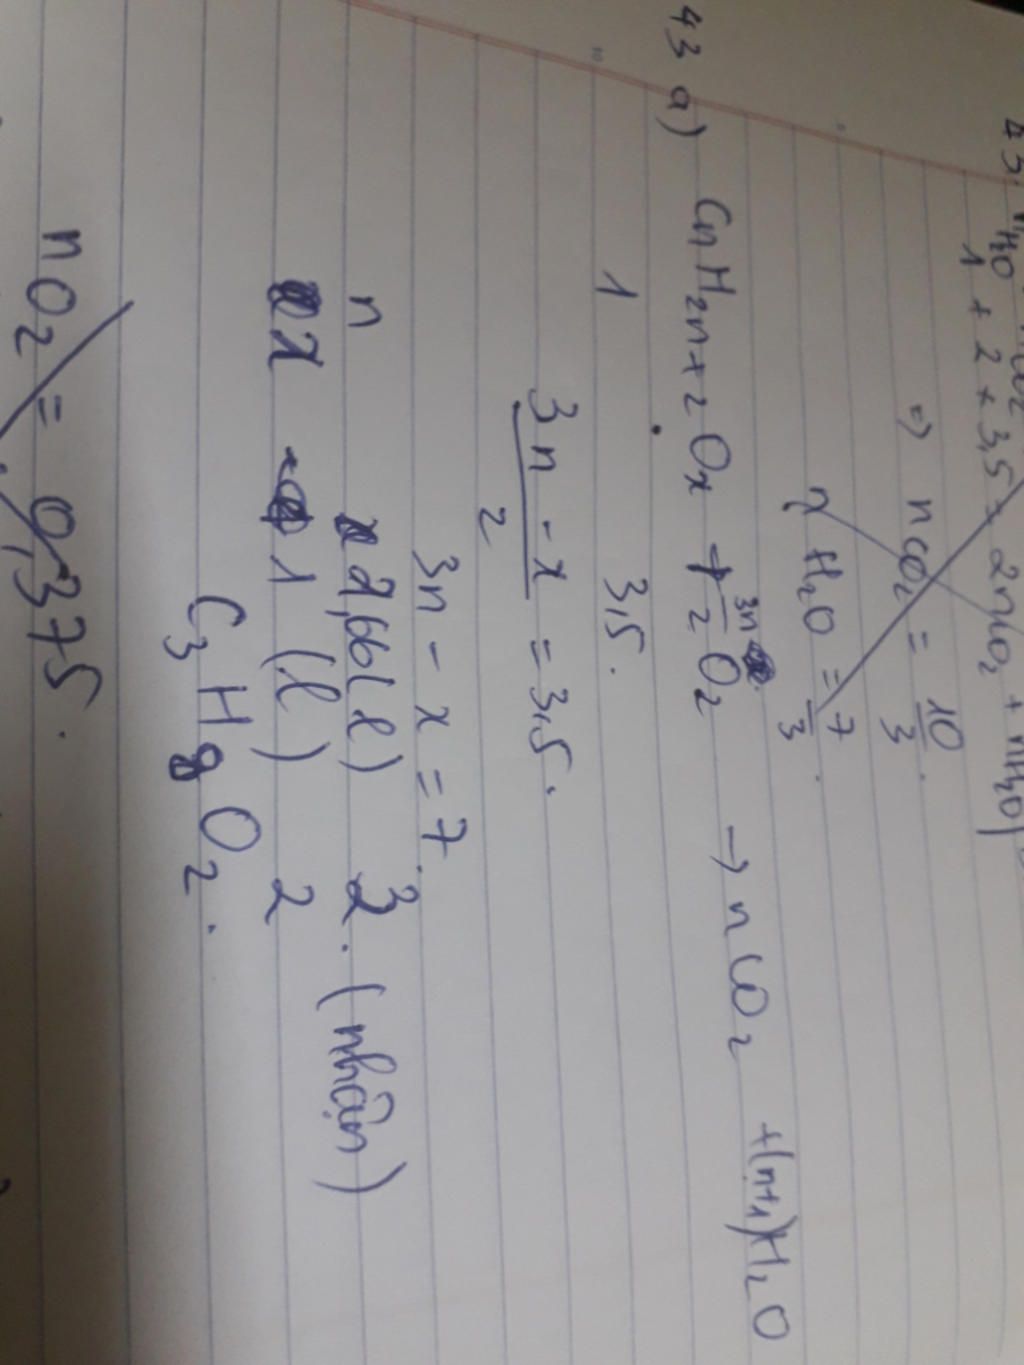 43. nH2O
1 + 2 * 3,5 = 2nCO2 + nH2O
=> nCO2 = 10/3.
nH2O = 7/3.
43 a) CnH2n+2Ox + 3n/2 O2 → nCO2 + (n+1)H2O
1 3,5.
3n - x / 2 = 3,5.
3n - x = 7.
n 2,66(l) 3. (nhận)
x 1 (l) 2
C3H8O2.
nO2 = 0,375.